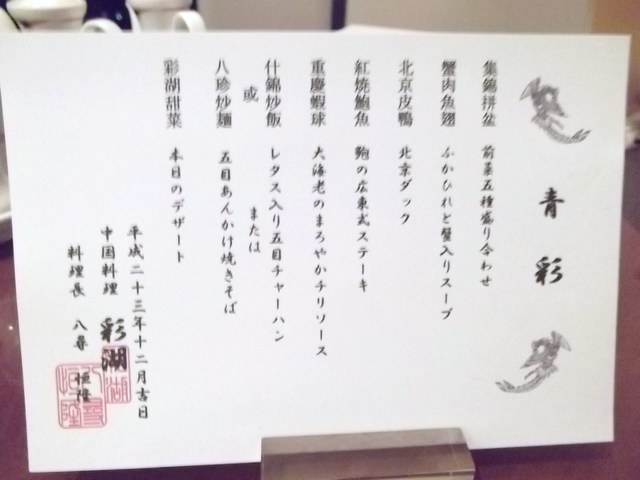 青彩
集錦拼盆 前菜五種盛り合わせ
蟹肉魚翅 ふかひれと蟹入りスープ
北京皮鴨 北京ダック
紅焼鮑魚 鮑の広東式ステーキ
重慶蝦球 大海老のまろやかチリソース
什錦炒飯 レタス入り五目チャーハン
或 または
八珍炒麺 五目あんかけ焼きそば
彩湖甜菜 本日のデザート
平成二十三年十二月吉日
中国料理 彩湖
料理長 八尋 恒隆